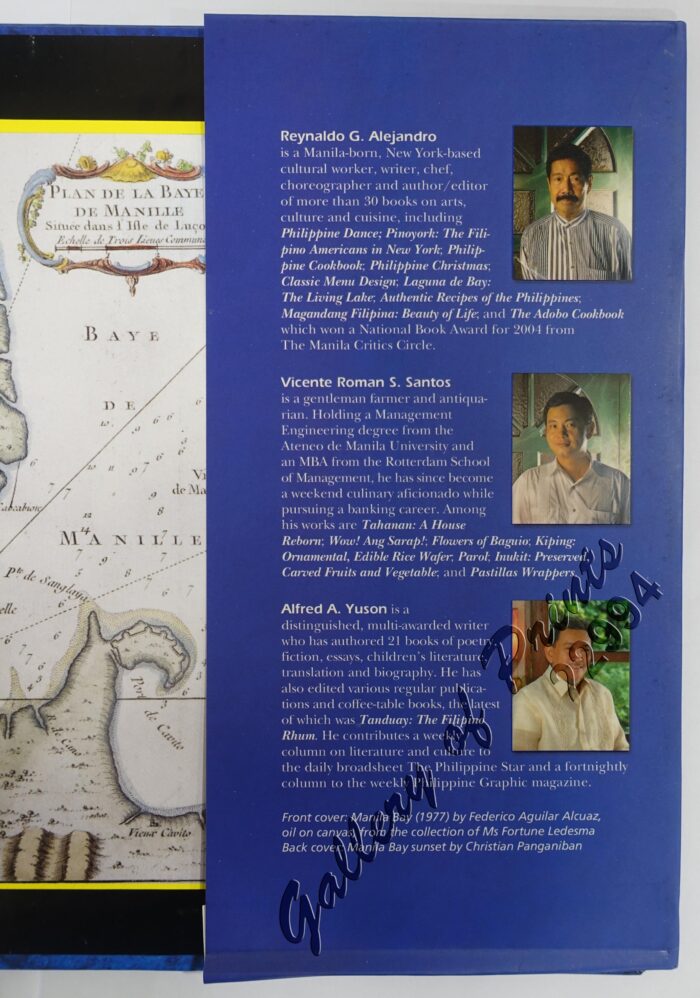 PLAN DE LA BAYE
DE MANILLE
Située dans l'Isle de Luço
Echelle de Trois Lieues Commun
BAYE
DE
MANILLE
de Ma
Pte. de Sanglay
Port de Cavite
Vieux Cavite
Reynaldo G. Alejandro
is a Manila-born, New York-based
cultural worker, writer, chef,
choreographer and author/editor
of more than 30 books on arts,
culture and cuisine, including
Philippine Dance; Pinoyork: The Fili-
pino Americans in New York; Philip-
pine Cookbook; Philippine Christmas;
Classic Menu Design; Laguna de Bay:
The Living Lake; Authentic Recipes of the Philippines;
Magandang Filipina: Beauty of Life; and The Adobo Cookbook
which won a National Book Award for 2004 from
The Manila Critics Circle.
Vicente Roman S. Santos
is a gentleman farmer and antiqua-
rian. Holding a Management
Engineering degree from the
Ateneo de Manila University and
an MBA from the Rotterdam School
of Management, he has since become
a weekend culinary aficionado while
pursuing a banking career. Among
his works are Tahanan: A House
Reborn; Wow! Ang Sarap!; Flowers of Baguio; Kiping:
Ornamental, Edible Rice Wafer; Parol; Inukit: Preserved,
Carved Fruits and Vegetable; and Pastillas Wrappers.
Alfred A. Yuson is a
distinguished, multi-awarded writer
who has authored 21 books of poetry
fiction, essays, children's literature,
translation and biography. He has
also edited various regular publica-
tions and coffee-table books, the latest
of which was Tanduay: The Filipino
Rhum. He contributes a weekly
column on literature and culture to
the daily broadsheet The Philippine Star and a fortnightly
column to the weekly Philippine Graphic magazine.
Front cover: Manila Bay (1977) by Federico Aguilar Alcuaz,
oil on canvas, from the collection of Ms Fortune Ledesma
Back cover: Manila Bay sunset by Christian Panganiban
Gallery of Prints
22994